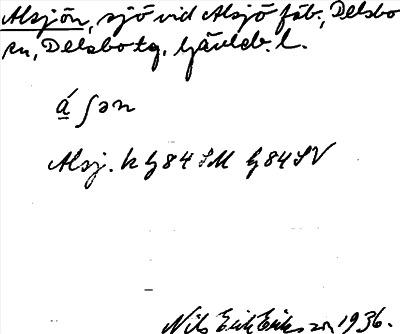 Alsjön, sjö vid Alsjö fäb., Delsbo
sn, Delsbo tg. Gävleb. l.
á̱ ʃən
Alsj. k G84 SM G84 SV
Nils Erik Eriksson 1936.